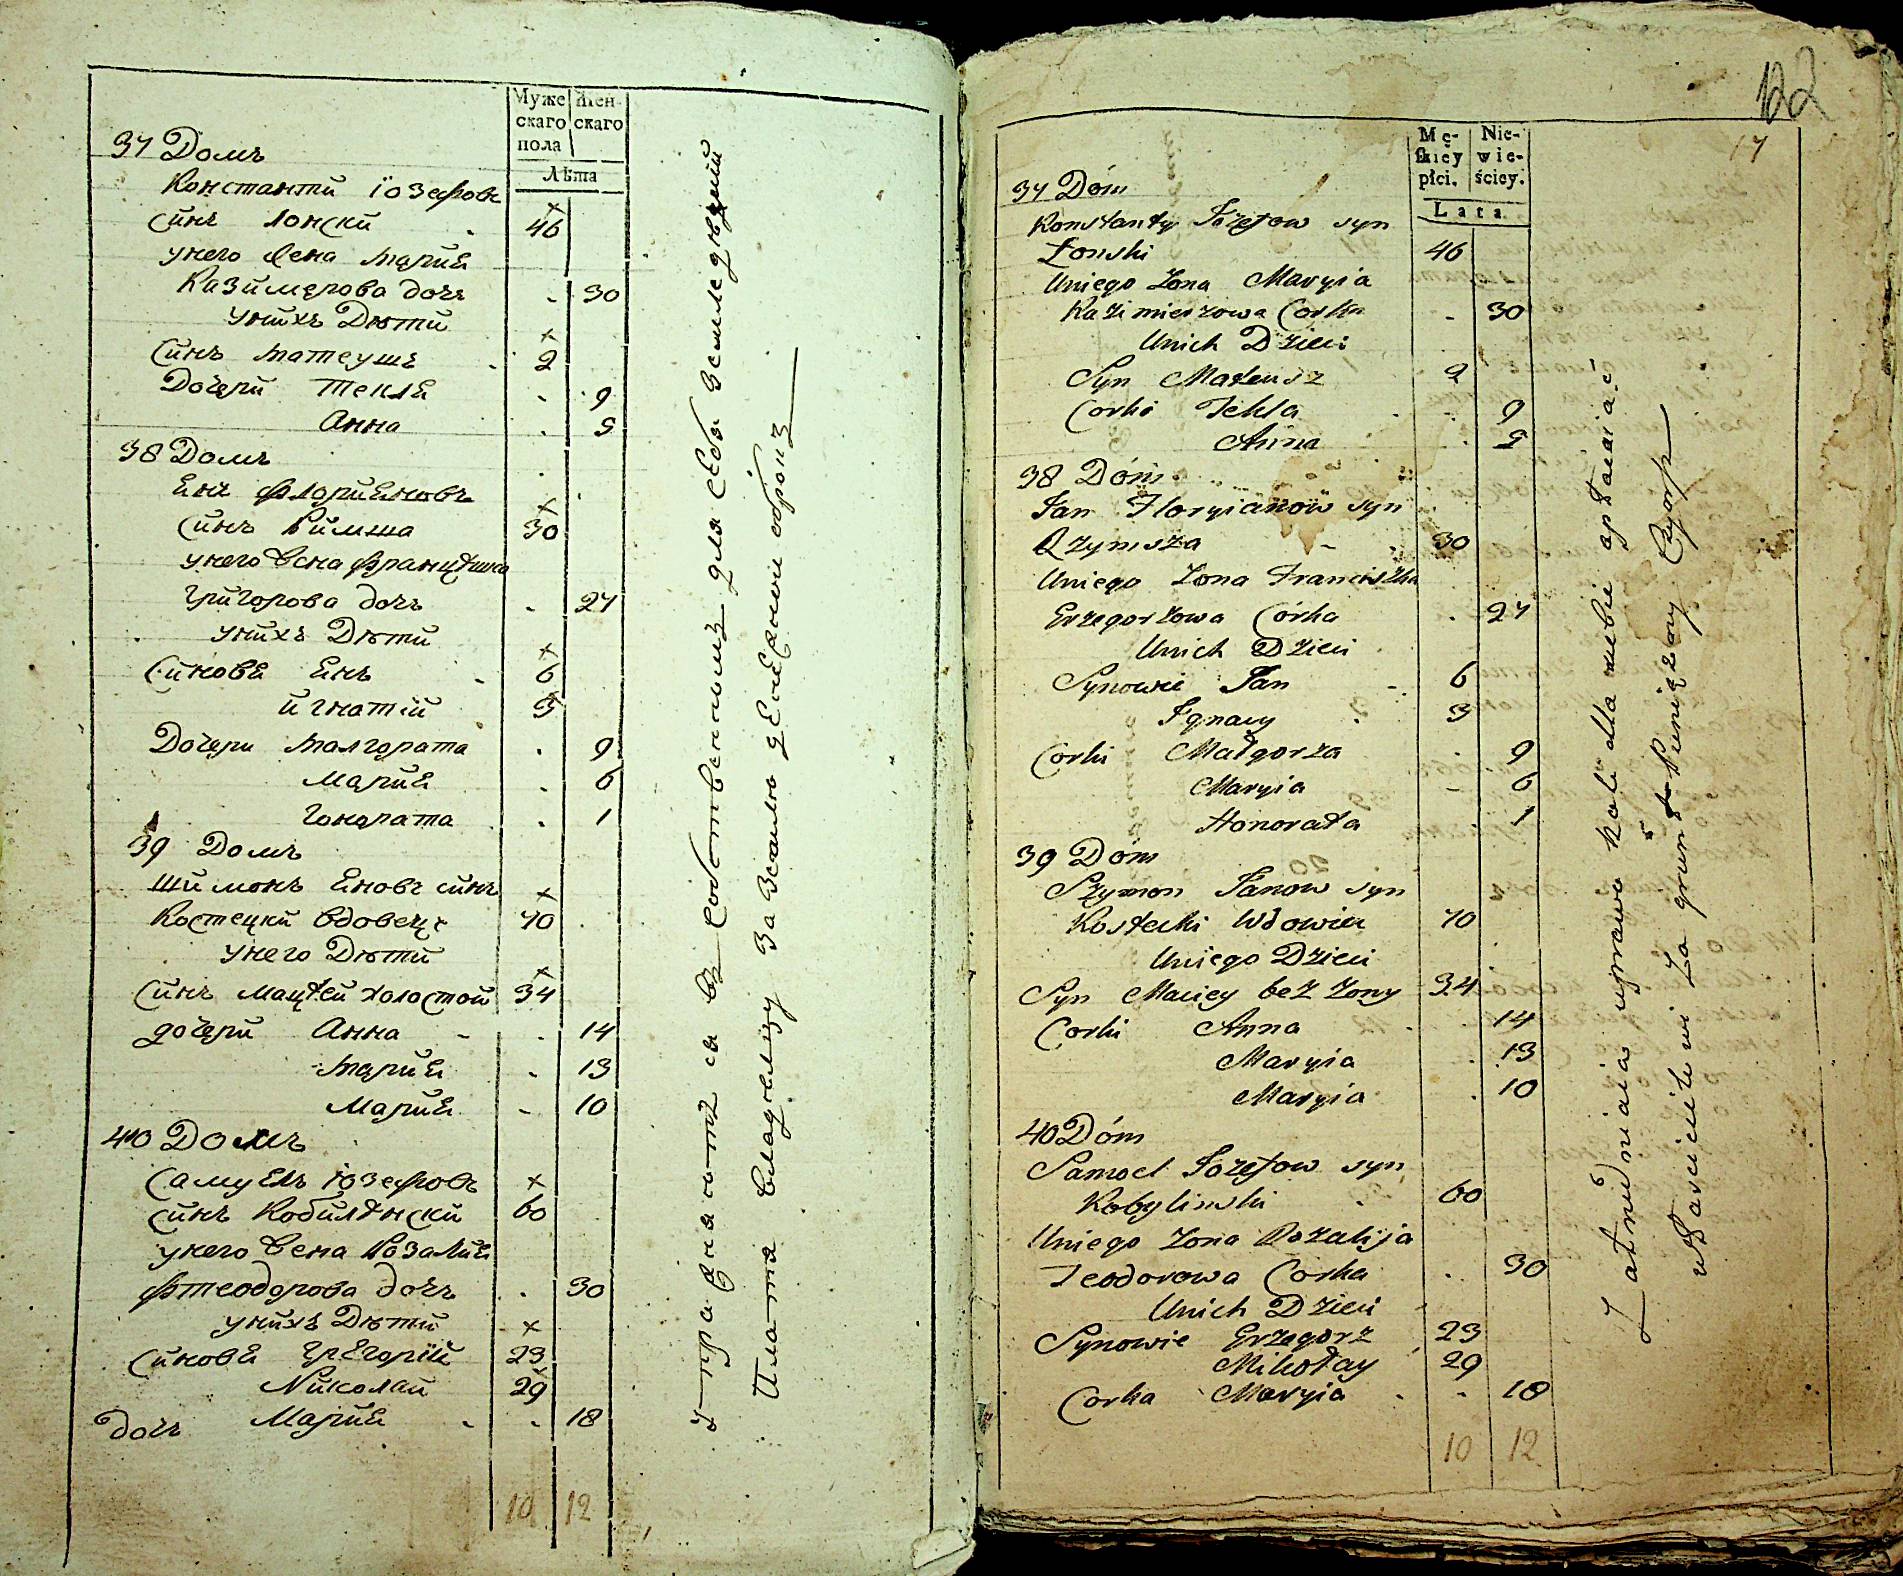 Муже Жен-
скаго скаго
пола
Лѣта
37 Домъ
Константы Іозефовъ
Синъ Лонски 46
у него Жена Марыя
Казимерова дочь 30
у нихъ Дѣти
Синъ Матеушъ 2
Дочери Текля 9
Анна 5
38 Домъ
Янъ Флориеновъ
Синъ Римша 30
у него Жена Францишка
Григорова дочь 27
у нихъ Дѣти
Синовя Янъ 6
Игнатій 3
Дочери Малгората 9
Мария 6
Гонората 1
39 Домъ
Шимонъ Яновъ синъ
Костецки вдовецъ 70
у него Дѣти
Синъ Мацей холостой 34
дочери Анна 14
Мария 13
Мария 10
40 Домъ
Самуель Іозефовъ
синъ Кобилински 60
у него Жена Розалия
Фтеодорова дочъ 30
у нихъ Дѣти
синовя Грегорий 23
Николай 29
дочъ Мария 18
10 12
для себя земледѣлий
за землю
122
17
Mę- Nie-
skiey wie-
płci. ściey.
Lata
37 Dóm
Konstanty Jozefow syn
Łonski 46
Uniego Zona Maryia
Kazimierzowa Corka 30
Unich Dzieci
Syn Mateusz 2
Corki Tekla 9
Anna 5
38 Dóm
Jan Floryianow syn
Rzymsza 30
Uniego Zona Franciszka
Grzegorzowa Córka 27
Unich Dzieci
Synowie Jan 6
Jgnacy 3
Corki Małgorza 9
Maryia 6
Honorata 1
39 Dóm
Szymon Janow syn
Kostecki Wdowiec 70
Uniego Dzieci
Syn Maciey bez zony 34
Corki Anna 14
Maryia 13
Maryia 10
40 Dóm
Samoel Jozefow syn
Kobylinski 60
Uniego Zona Rozalija
Teodorowa Corka 30
Unich Dzieci
Synowie Grzegorz 23
Mikołay 29
Corka Maryia 18
10 12
Zatrudniaia uprawa roli dla siebie opłaciać
właścicielowi za grunt Pieniężny Czynsz